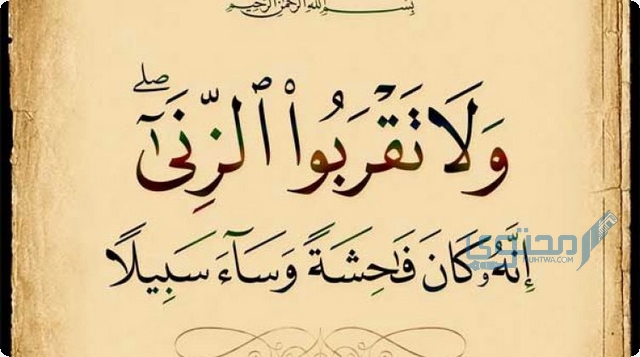 بِسْمِ اللهِ الرَّحْمٰنِ الرَّحِيْمِ
وَلَا تَقْرَبُوا۟ ٱلزِّنَىٰٓ ۖ
إِنَّهُۥ كَانَ فَـٰحِشَةً وَسَآءَ سَبِيلًا
محتوى
MUHTWA.COM